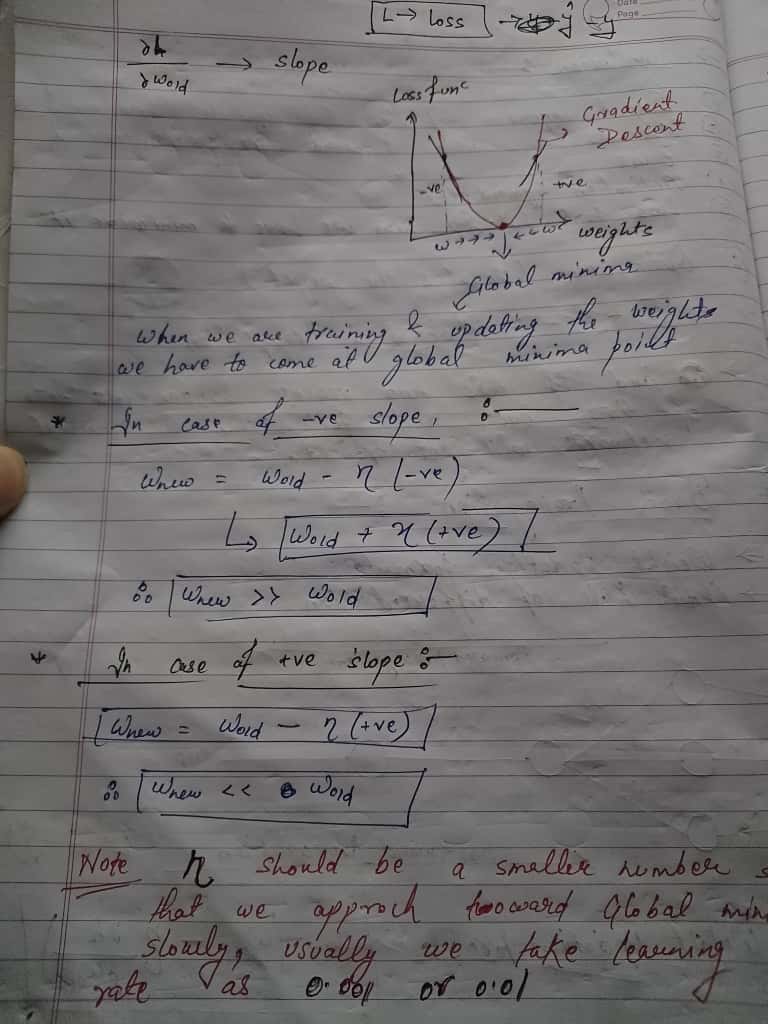 Date
Page
L → loss → ŷ - y
∂L / ∂wold → slope
Loss funᶜ
Gradient
Descent
-ve
+ve
w → → → ← ← w
weights
Global minima
When we are training & updating the weights
we have to come at global minima point
* In case of -ve slope, :-
wnew = wold - η (-ve)
↳ wold + η (+ve)
∴ wnew >> wold
* In case of +ve slope :-
wnew = wold - η (+ve)
∴ wnew << wold
Note η should be a smaller number s
that we approch tooward Global min
slowly, usually we take learning
rate as 0.001 or 0.01